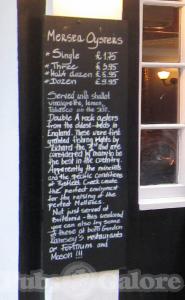 Mersea Oysters
* Single £1.75
* Three £4.95
* Half dozen £5.95
* Dozen £9.95
Served with shallot
vinaigrette, lemon,
Tobacco on the side.
Double A rock oysters
from the oldest beds in
England. These were first
granted fishing rights by
Richard the 1st and are
considered by many to be
the best in the country.
Apparently the minerals
and the specific conditions
at Creek create
the perfect enviroment
for the raising of the
perfect Natives.
Not just served at
- this weekend
you can also try some
of these at both Gordon
Ramsey's restaurants
or Fortnum and
Mason !!!
pub galore